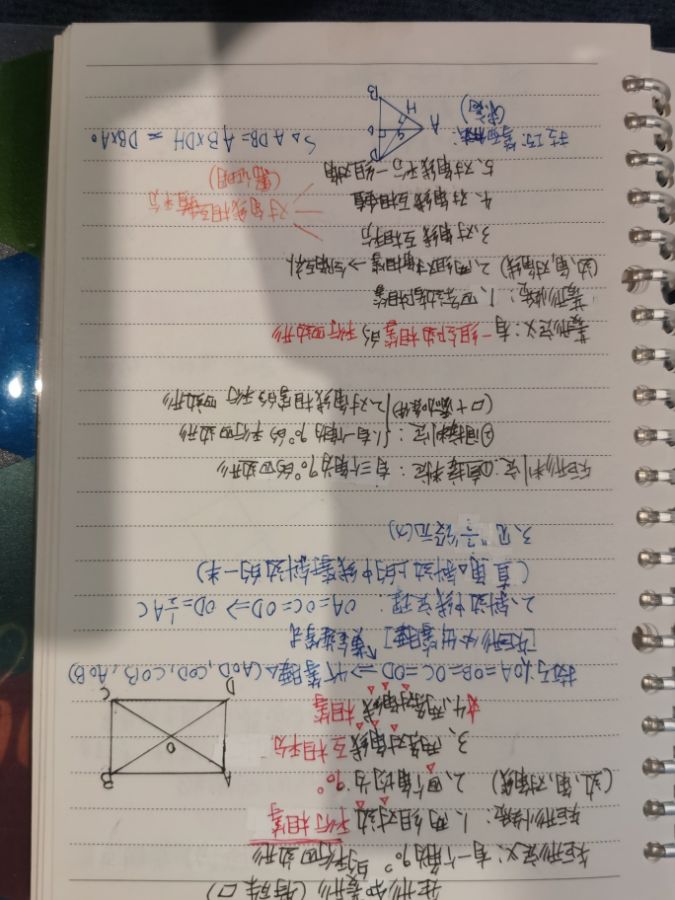 矩形和菱形 (特殊▱)
矩形定义：有一个角为90°的平行四边形
矩形性质：1、两组对边平行相等
(边,角,对角线) 2、四个角均为90°
3、两条对角线互相平分
4、两条对角线相等
A
B
C
D
O
技巧：1、OA=OB=OC=OD ⇒ 4个等腰△(AOD, COD, COB, AOB)
[矩形中出等腰]
2、斜边中线定理： OA=OC=OD ⇒ OD=½AC
(直角△斜边上的中线等于斜边的一半)
3、见"½"设元(x)
矩形判定：①直接判定：有三个角为90°的四边形
②间接判定：1、有一个角为90°的平行四边形
(▱+添加条件) 2、对角线相等的平行四边形
菱形定义：有一组邻边相等的平行四边形
菱形性质：1、四条边都相等
(边,角,对角线) 2、两组对角相等 → 邻角互补
3、对角线互相平分
4、对角线互相垂直
5、对角线平分一组对角
对角线相互垂直平分
(需证明)
技巧：等面积法：
(求高)
A
B
D
H
O
S△ADB=AB×DH=DB×AO